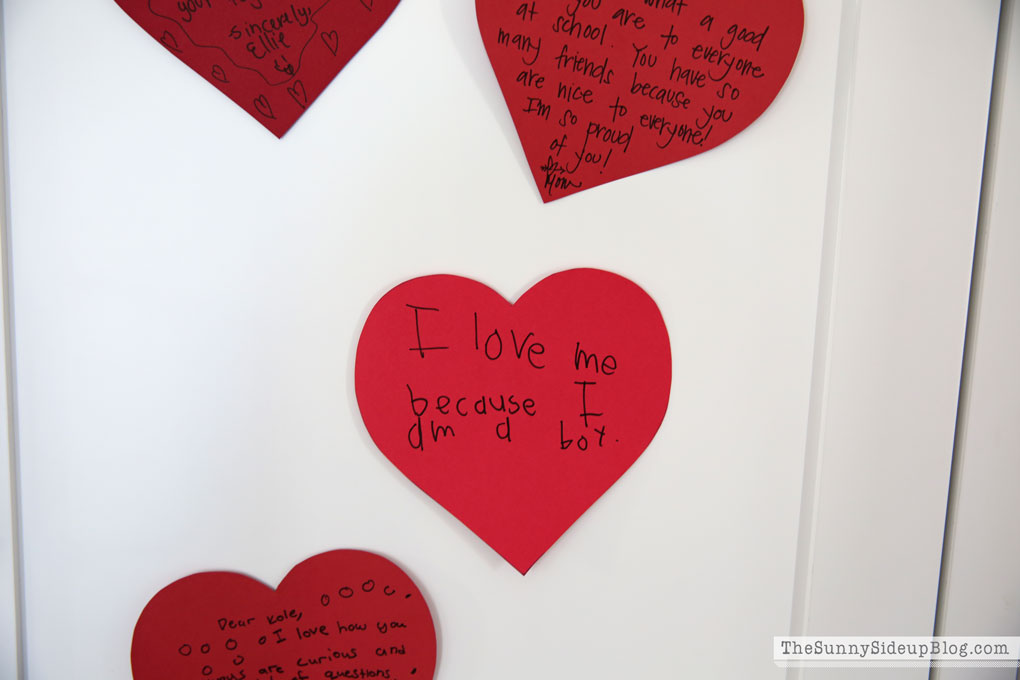 sincerely,
Ellie
what a good
you are to everyone
at school. You have so
many friends because you
are nice to everyone!
I'm so proud
of you!
Mom
I love me
because I
am a boy.
Dear Kole,
I love how you
are curious and
questions.
TheSunnySideupBlog.com